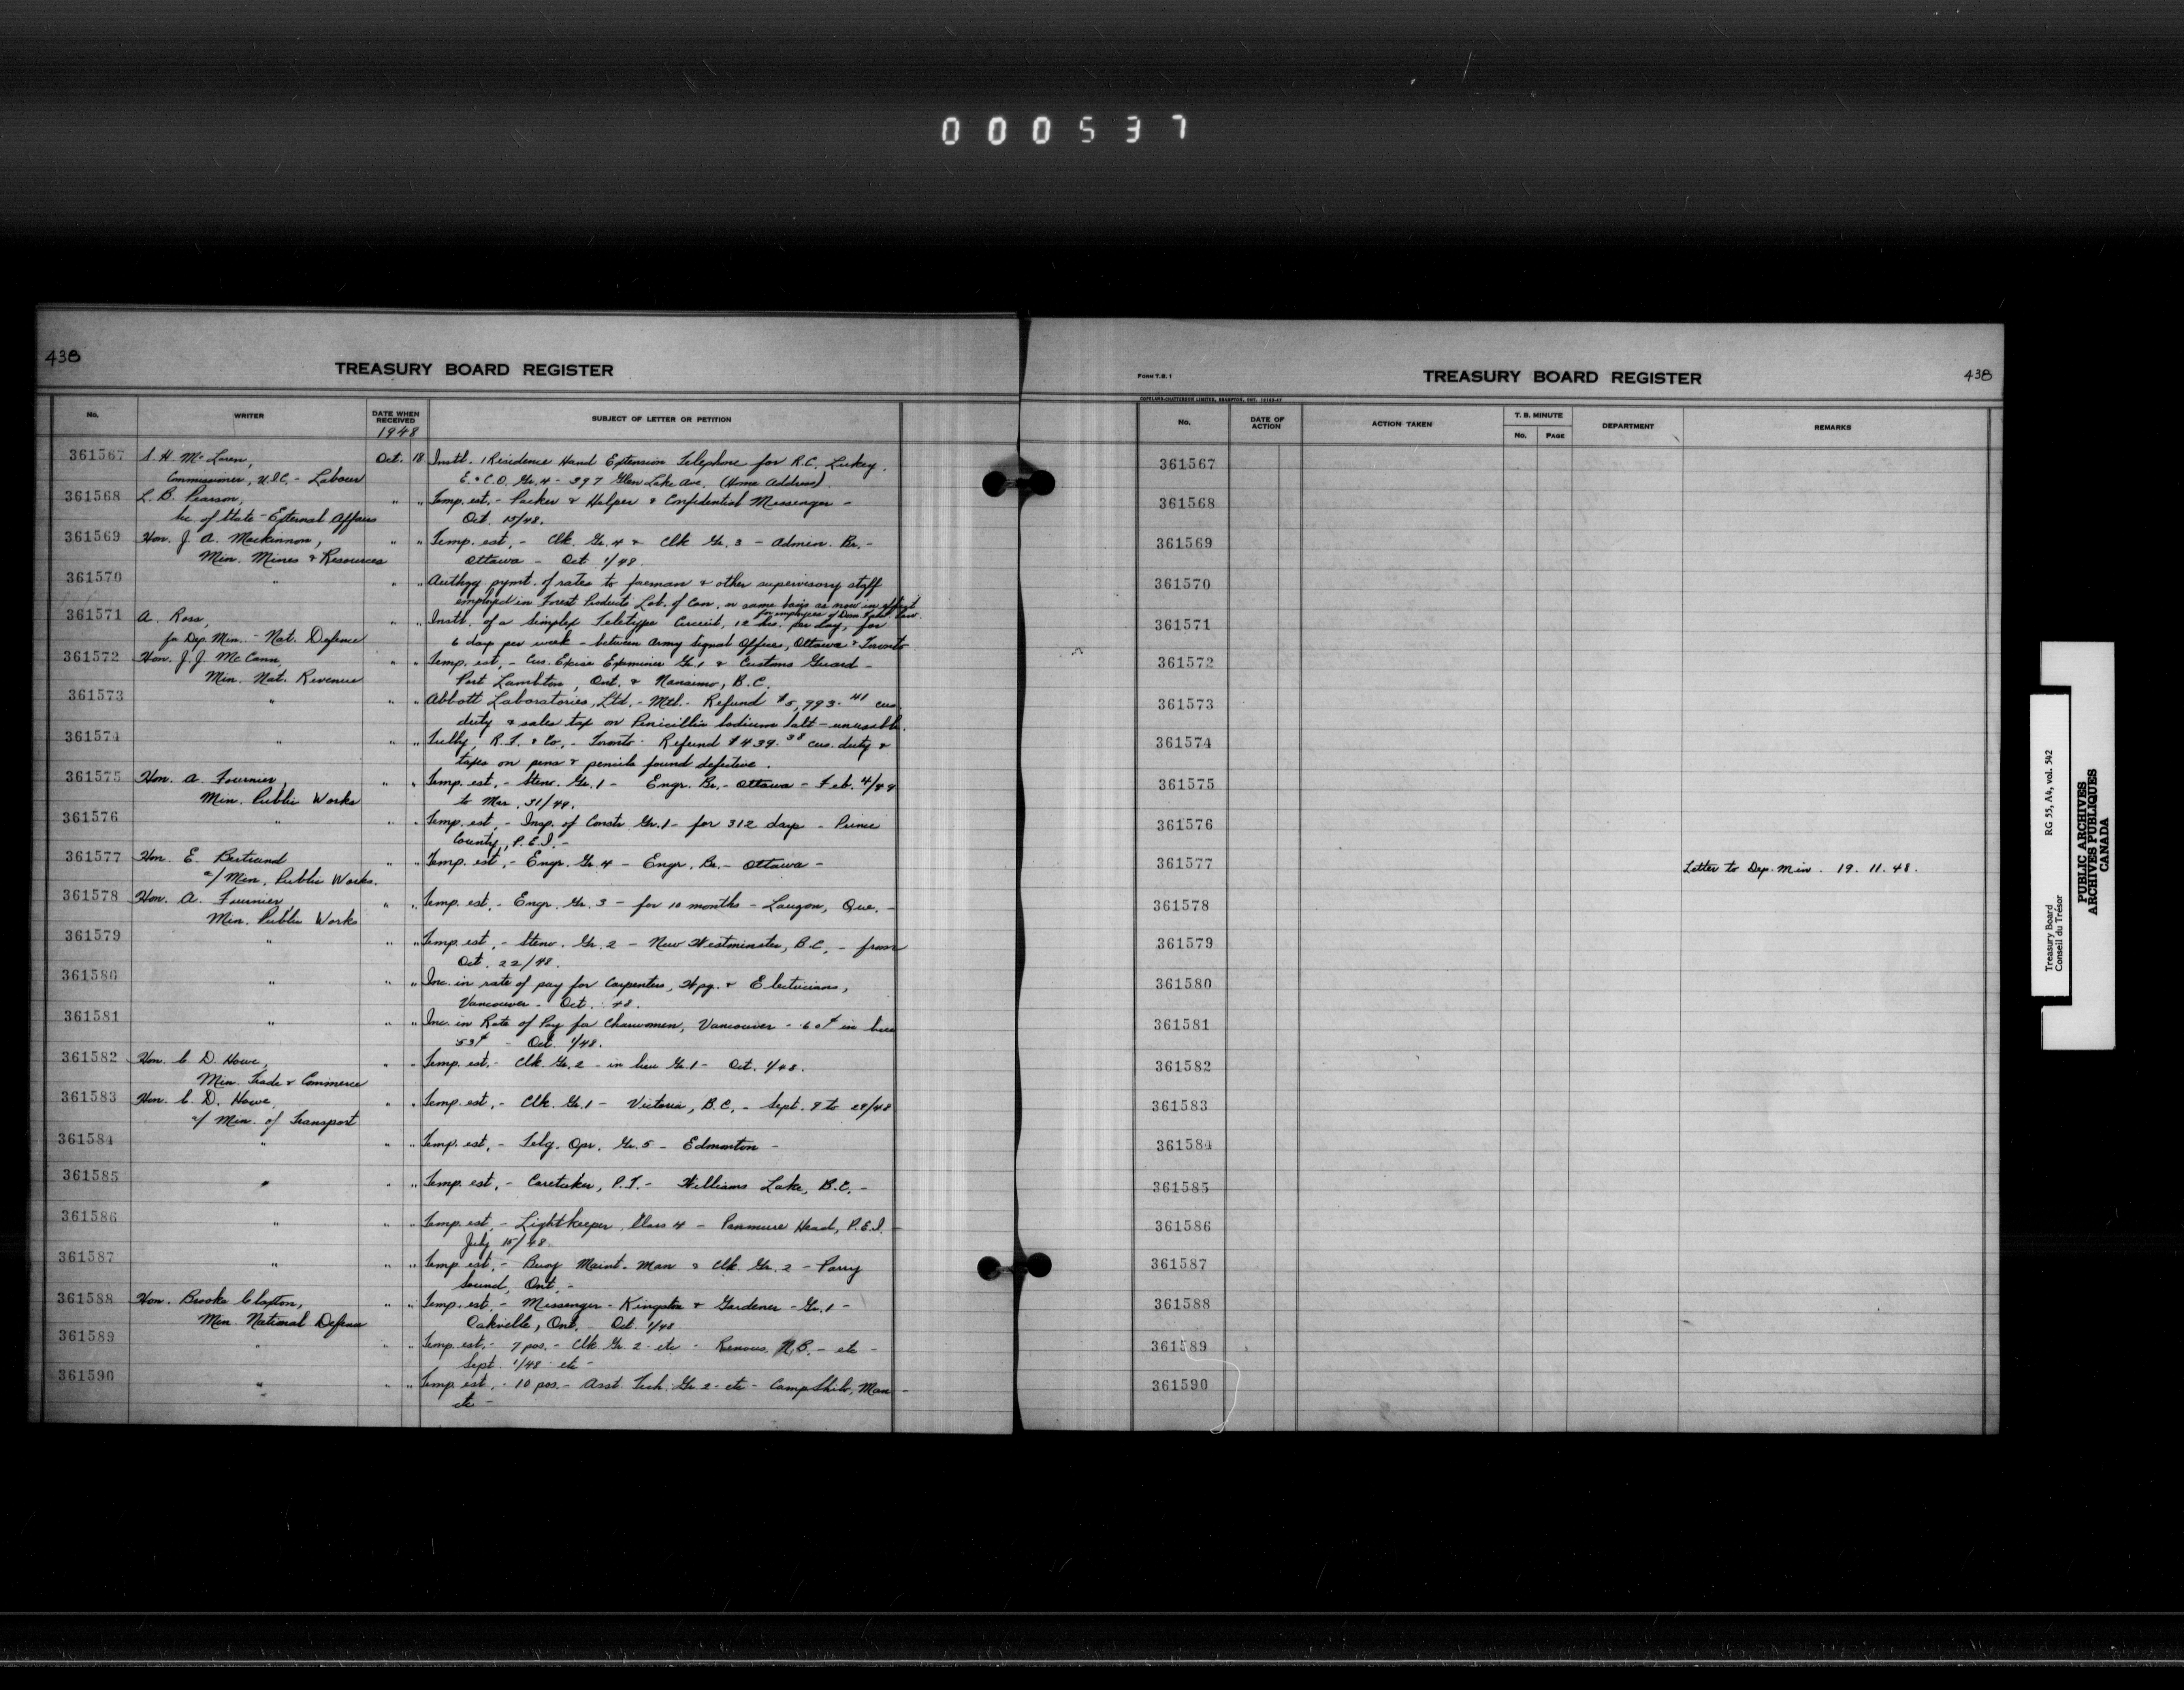 000537
438
TREASURY BOARD REGISTER
No.
WRITER
DATE WHEN RECEIVED
1948
SUBJECT OF LETTER OR PETITION
361567 S. H. McLaren, Oct. 18 Instl. 1 Residence Hand Extension Telephone for R.C. Luckey.
Commissioner, U.I.C. - Labour E. & C.O. Gr. 4 - 397 Glen Lake Ave. (Home Address).
361568 L. B. Pearson, " " Temp. est. - Packer & Helper & Confidential Messenger -
Sec. of State - External Affairs Oct. 15/48.
361569 Hon. J. A. Mackinnon, " " Temp. est. - Clk. Gr. 4 & Clk Gr. 3 - Admin. Br. -
Min. Mines & Resources Ottawa - Oct. 1/48.
361570 " " " Authzg. pymt. of rates to foreman & other supervisory staff
employed in Forest Products Lab. of Can. on same basis as now in effect
for employees of Dom.
361571 A. Ross, " " Instl. of a Simplex Teletype Circuit, 12 hrs. per day, for
for Dep. Min. - Nat. Defence 6 day per week - between Army Signal Offices, Ottawa & Toronto
361572 Hon. J. J. McCann, " " Temp. est. - Cus. Excise Examiner Gr. 1 & Customs Guard -
Min. Nat. Revenue Port Lambton, Ont. & Nanaimo, B.C.
361573 " " " Abbott Laboratories, Ltd. - Mtl. - Refund $5,993.41 cus.
duty & sales tax on Penicillin Sodium Salt - unusable.
361574 " " " Tully, R. T. & Co. - Toronto - Refund $439.38 cus. duty &
taxes on pens & pencils found defective.
361575 Hon. A. Fournier, " " Temp. est. - Steno. Gr. 1 - Engr. Br. - Ottawa - Feb. 4/49
Min. Public Works to Mar. 31/49.
361576 " " " Temp. est. - Insp. of Constr Gr. 1 - for 312 days - Prince
County, P.E.I. -
361577 Hon. E. Bertrand " " Temp. est. - Engr. Gr. 4 - Engr. Br. - Ottawa -
a/ Min. Public Works.
361578 Hon. A. Fournier, " " Temp. est. - Engr. Gr. 3 - for 10 months - Lauzon, Que. -
Min. Public Works
361579 " " " Temp. est. - Steno. Gr. 2 - New Westminster, B.C. - from
Oct. 22/48.
361580 " " " Inc. in rate of pay for Carpenters, Wpg. & Electricians,
Vancouver - Oct. 48.
361581 " " " Inc. in Rate of Pay for Charwomen, Vancouver - 60¢ in lieu
53¢ - Oct. 1/48.
361582 Hon. C. D. Howe, " " Temp. est. - Clk. Gr. 2 - in lieu Gr. 1 - Oct. 1/48.
Min. Trade & Commerce
361583 Hon. C. D. Howe, " " Temp. est. - Clk. Gr. 1 - Victoria, B.C. - Sept. 9 to 29/48
a/ Min. of Transport
361584 " " " Temp. est. - Telg. Opr. Gr. 5 - Edmonton -
361585 " " " Temp. est. - Caretaker, P.T. - Williams Lake, B.C. -
361586 " " " Temp. est. - Lightkeeper, Class 4 - Panmure Head, P.E.I. -
July 15/48
361587 " " " Temp. est. - Buoy Maint. Man & Clk. Gr. 2 - Parry
Sound, Ont. -
361588 Hon. Brooke Claxton, " " Temp. est. - Messenger - Kingston & Gardener - Gr. 1 -
Min. National Defence Oakville, Ont. - Oct. 1/48
361589 " " " Temp. est. - 7 pos. - Clk Gr. 2 - etc - Renous, N.B. - etc -
Sept. 1/48 - etc -
361590 " " " Temp. est. - 10 pos. - Asst. Tech. Gr. 2 - etc - Camp Shilo, Man -
etc -
FORM T.B. 1
TREASURY BOARD REGISTER
438
COPELAND-CHATTERSON LIMITED, BRAMPTON, ONT.
No.
DATE OF ACTION
ACTION TAKEN
T. B. MINUTE
No.
PAGE
DEPARTMENT
REMARKS
361567
361568
361569
361570
361571
361572
361573
361574
361575
361576
361577 Letter to Dep. Min. 19.11.48.
361578
361579
361580
361581
361582
361583
361584
361585
361586
361587
361588
361589
361590
Treasury Board RG 55, A4, vol. 542
Conseil du Trésor
PUBLIC ARCHIVES
ARCHIVES PUBLIQUES
CANADA